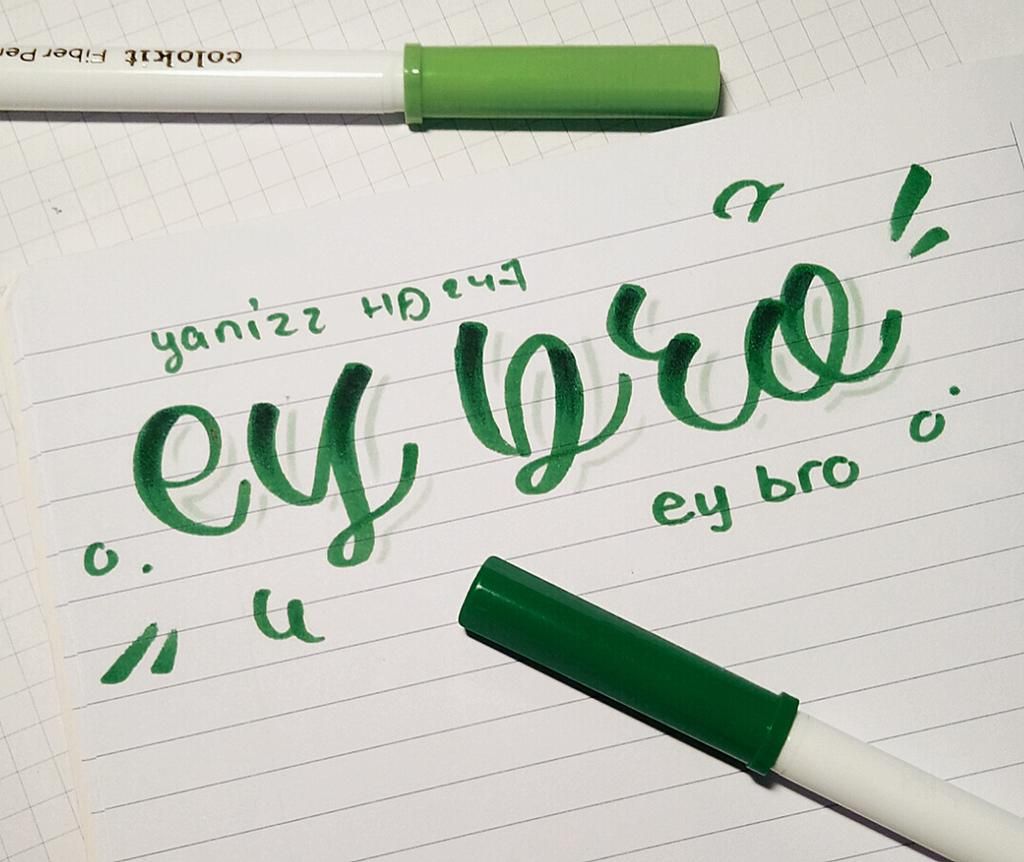 colokit Fiber Pen
yanizz HD 24-7
ey bro
ey bro